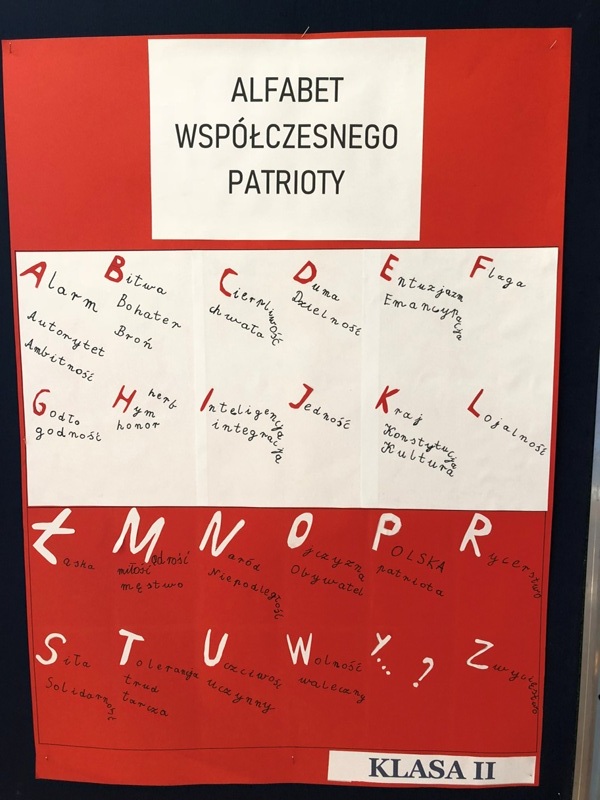 ALFABET
WSPÓŁCZESNEGO
PATRIOTY
Alarm
Autorytet
Ambitność
Bitwa
Bohater
Broń
Cierpliwość
chwała
Duma
Dzielność
Entuzjazm
Emancypacja
Flaga
Godło
godność
herb
Hym
honor
Inteligencja
integracja
Jedność
Kraj
Konstytucja
Kultura
Lojalność
Łaska
Mądrość
miłość
męstwo
Naród
Niepodległość
Ojczyzna
Obywatel
POLSKA
patriota
Rycerstwo
Siła
Solidarność
Tolerancja
trud
tarcza
Uczciwość
uczynny
Wolność
waleczny
Y... ?
Zwycięstwo
KLASA II